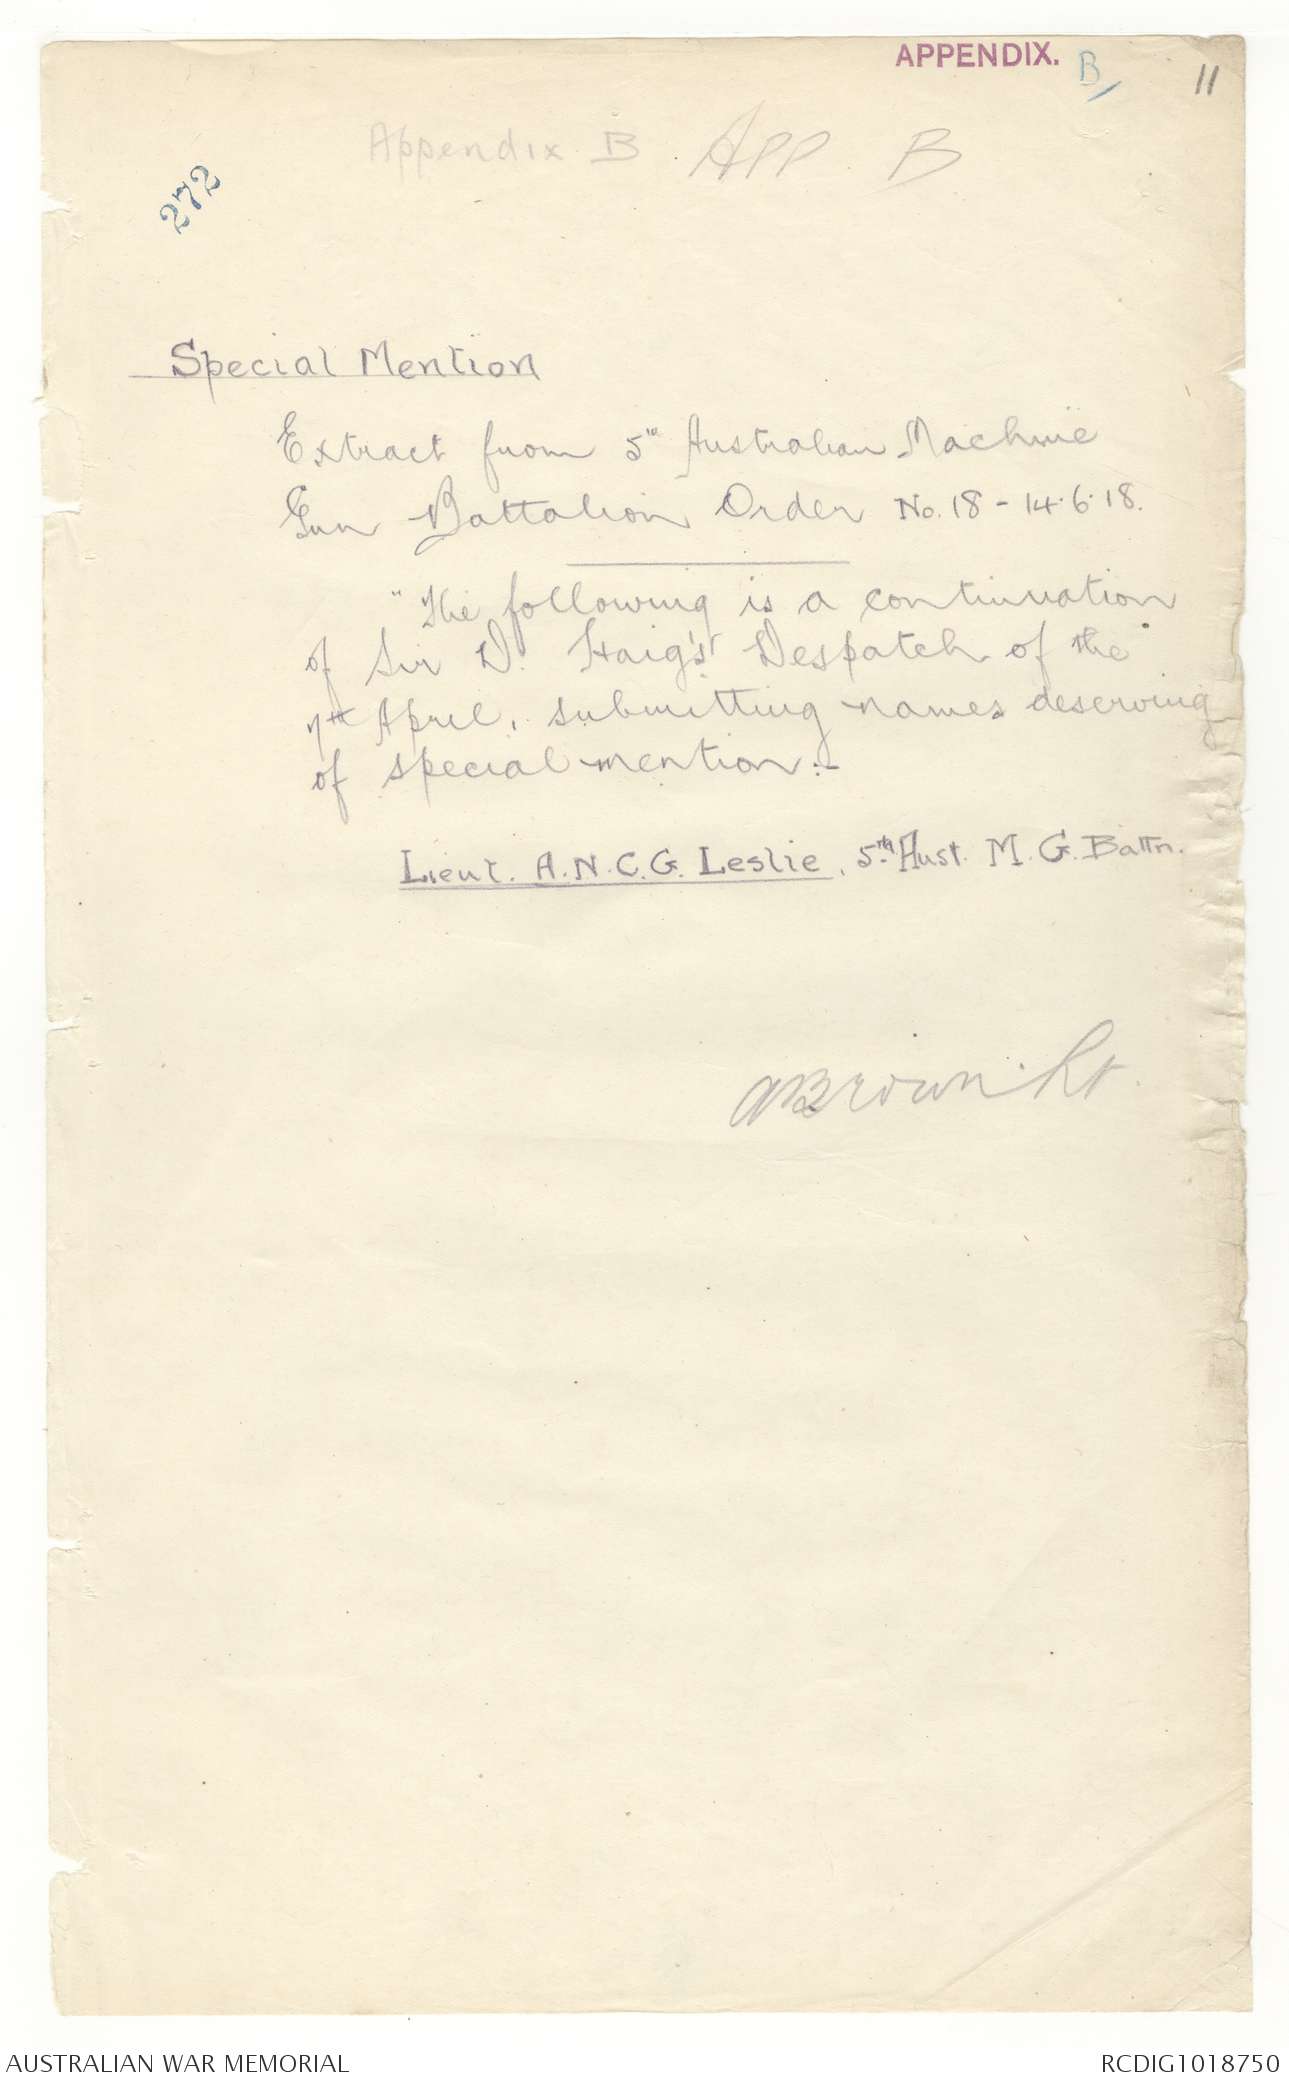 APPENDIX. B/ 11
Appendix B APP. B
272
Special Mention
Extract from 5th Australian Machine
Gun Battalion Order No. 18 - 14.6.18.
"The following is a continuation
of Sir D. Haig's Despatch of the
7th April, submitting names deserving
of special mention:-
Lieut. A.N.C.G. Leslie, 5th Aust. M.G. Battn.
Brown Lt.
AUSTRALIAN WAR MEMORIAL
RCDIG1018750